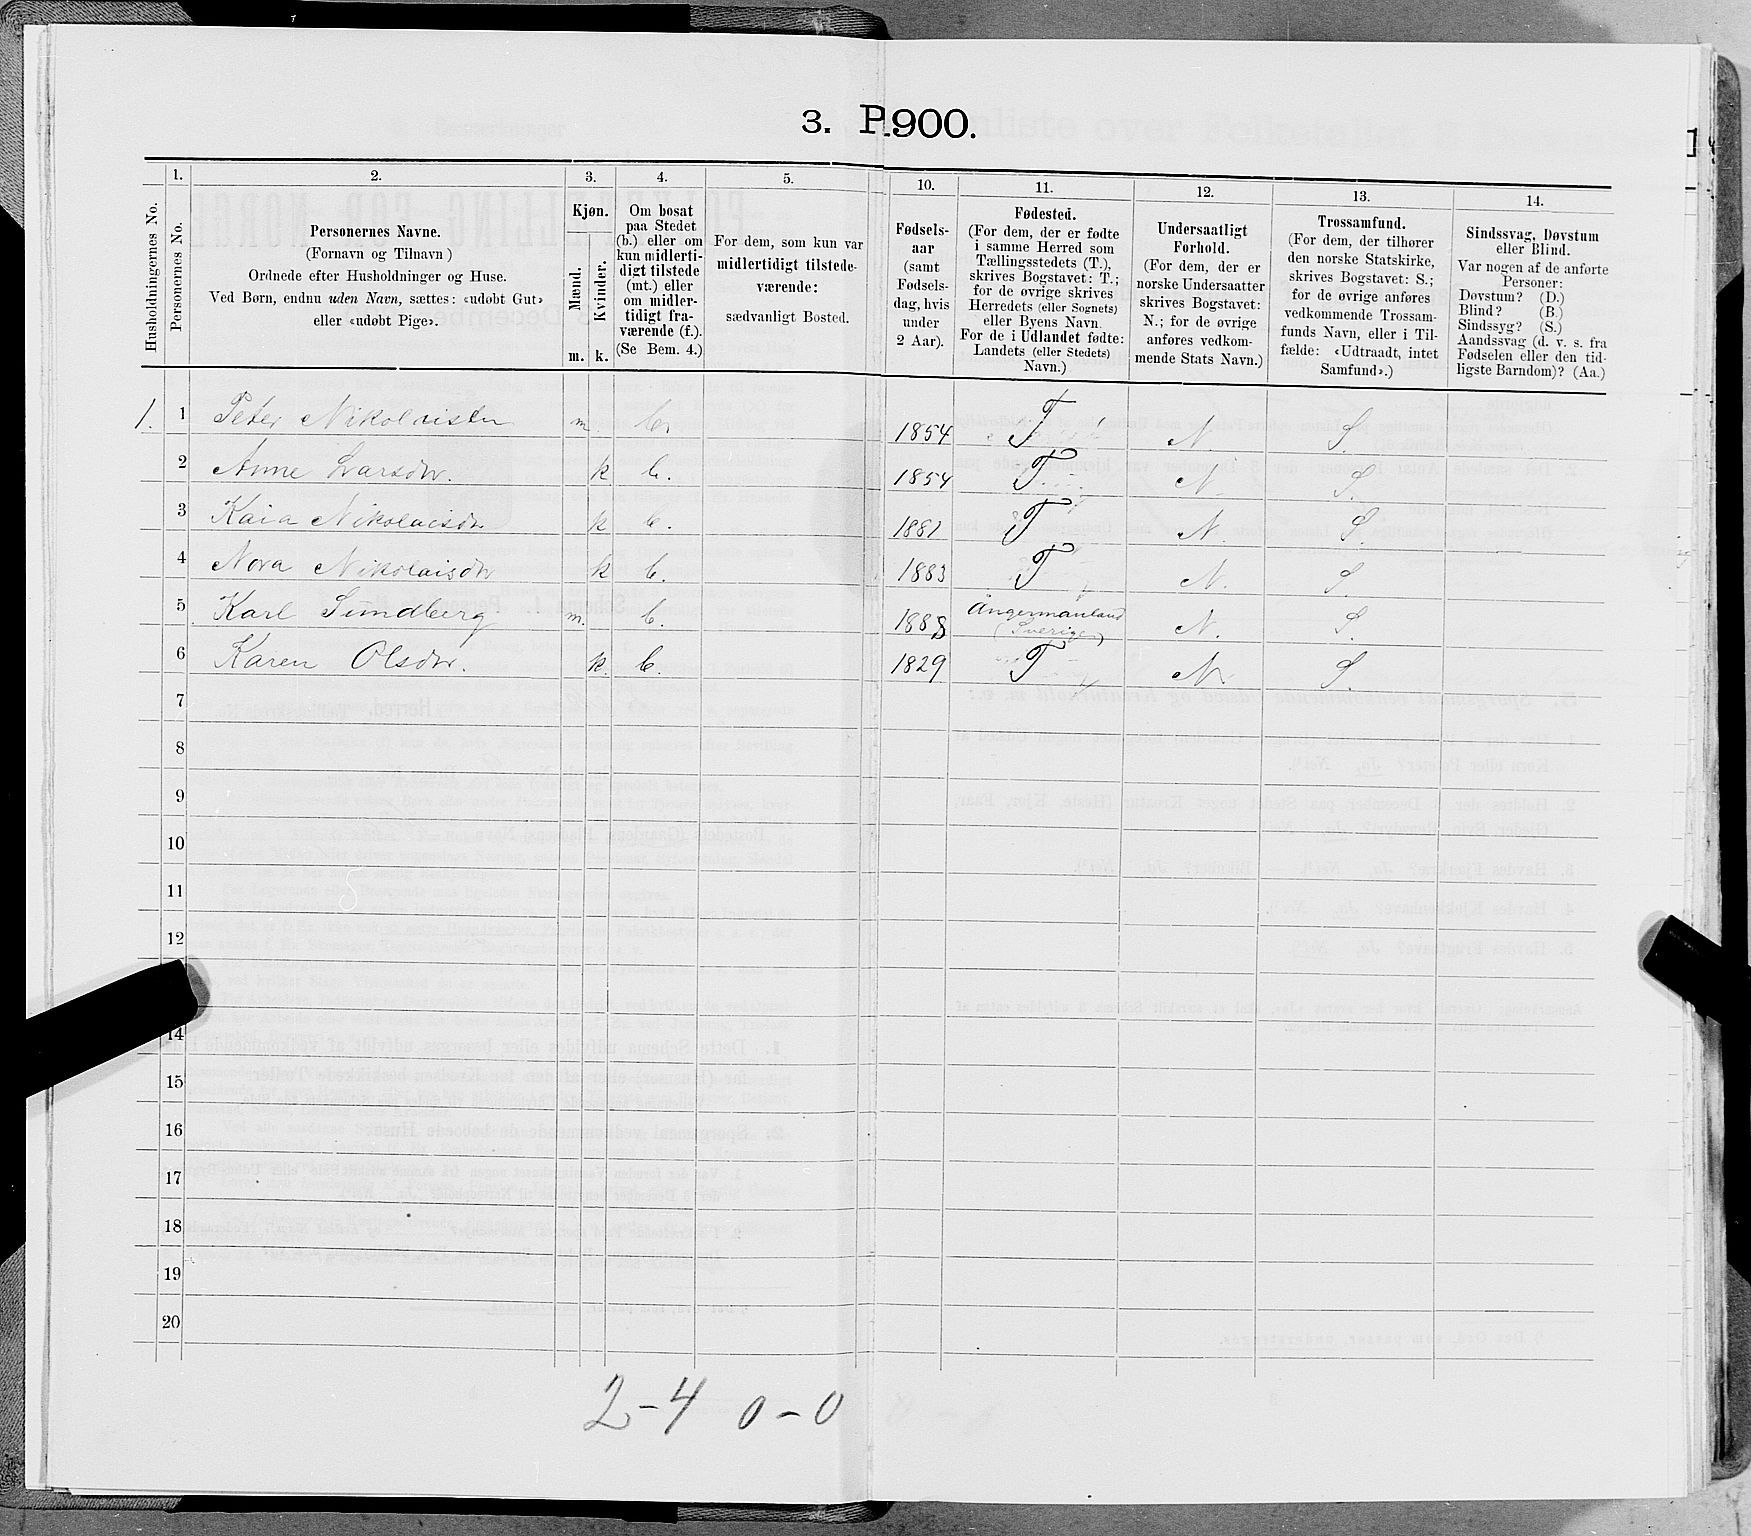 3. P.900.
1.
2.
3.
4.
5.
10.
11.
12.
13.
14.
Husholdningernes No.
Personernes No.
Personernes Navne.
(Fornavn og Tilnavn)
Ordnede efter Husholdninger og Huse.
Ved Børn, endnu uden Navn, sættes: «udøbt Gut»
eller «udøbt Pige».
Kjøn.
Mænd.
Kvinder.
m.
k.
Om bosat
paa Stedet
(b.) eller om
kun midlerti-
digt tilstede
(mt.) eller
om midler-
tidigt fra-
værende (f.).
(Se Bem. 4.)
For dem, som kun var
midlertidigt tilstede-
værende:
sædvanligt Bosted.
Fødsels-
aar
(samt
Fødsels-
dag, hvis
under
2 Aar).
Fødested.
(For dem, der er fødte
i samme Herred som
Tællingsstedets (T.),
skrives Bogstavet: T.;
for de øvrige skrives
Herredets (eller Sognets)
eller Byens Navn.
For de i Udlandet fødte:
Landets (eller Stedets)
Navn.)
Undersaatligt
Forhold.
(For dem, der er
norske Undersaatter
skrives Bogstavet:
N.; for de øvrige
anføres vedkom-
mende Stats Navn.)
Trossamfund.
(For dem, der tilhører
den norske Statskirke,
skrives Bogstavet: S.;
for de øvrige anføres
vedkommende Trossam-
funds Navn, eller i Til-
fælde: «Udtraadt, intet
Samfund».)
Sindssvag, Døvstum
eller Blind.
Var nogen af de anførte
Personer:
Døvstum? (D.)
Blind? (B.)
Sindssyg? (S.)
Aandssvag (d. v. s. fra
Fødselen eller den tid-
ligste Barndom)? (Aa.)
1. 1 Peter Nikolaisen m b. 1854 T N. S.
2 Anne Larsdtr. k b. 1854 T. N. S.
3 Kaia Nikolaisdtr k b. 1881 T N. S.
4 Nora Nikolaisdtr k b. 1883 T N. S.
5 Karl Sundberg m. b. 1888 Ångermanland
(Sverige) N. S.
6 Karen Olsdtr. k. b. 1829 T N. S.
7
8
9
10
11
12
14
15
16
17
18
19
20
2-4 0-0